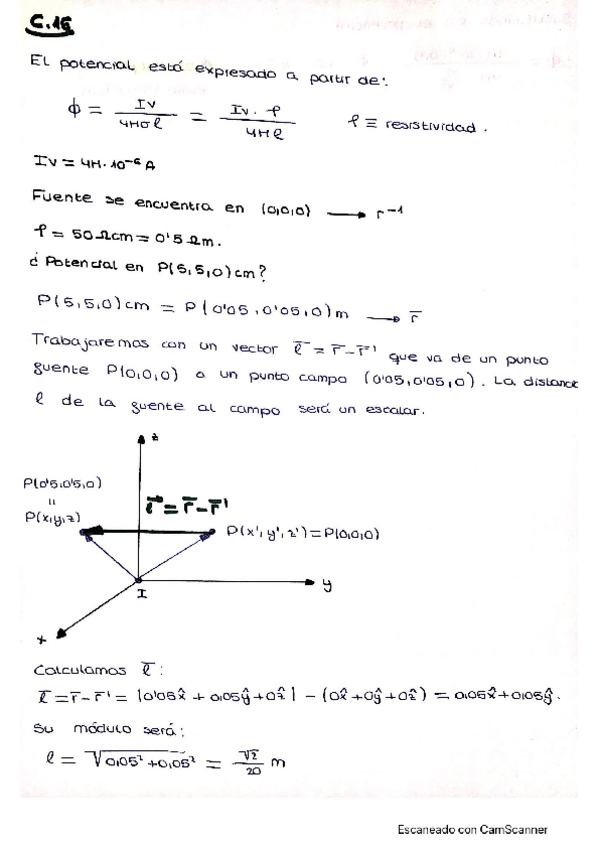 C.16
El potencial está expresado a partir de:
Φ = Iv / 4πσℓ = Iv · ρ / 4πℓ ρ ≡ resistividad.
Iv = 4π·10⁻⁶ A
Fuente se encuentra en (0,0,0) → r⁻¹
ρ = 50 Ωcm = 0'5 Ωm.
¿ Potencial en P(5,5,0) cm?
P(5,5,0) cm = P(0'05,0'05,0) m → r̅
Trabajaremos con un vector ℓ̅ = r̅ - r̅' que va de un punto
fuente P(0,0,0) a un punto campo (0'05,0'05,0). La distanc
ℓ de la fuente al campo será un escalar.
z
P(0'5,0'5,0)
"
P(x,y,z)
ℓ̅ = r̅ - r̅'
P(x',y',z') = P(0,0,0)
I
y
x
Calculamos ℓ̅:
ℓ̅ = r̅ - r̅' = (0'05x̂ + 0,05ŷ + 0ẑ) - (0x̂ + 0ŷ + 0ẑ) = 0,05x̂ + 0,05ŷ.
Su módulo será:
ℓ = √(0,05² + 0,05²) = √2 / 20 m
Escaneado con CamScanner